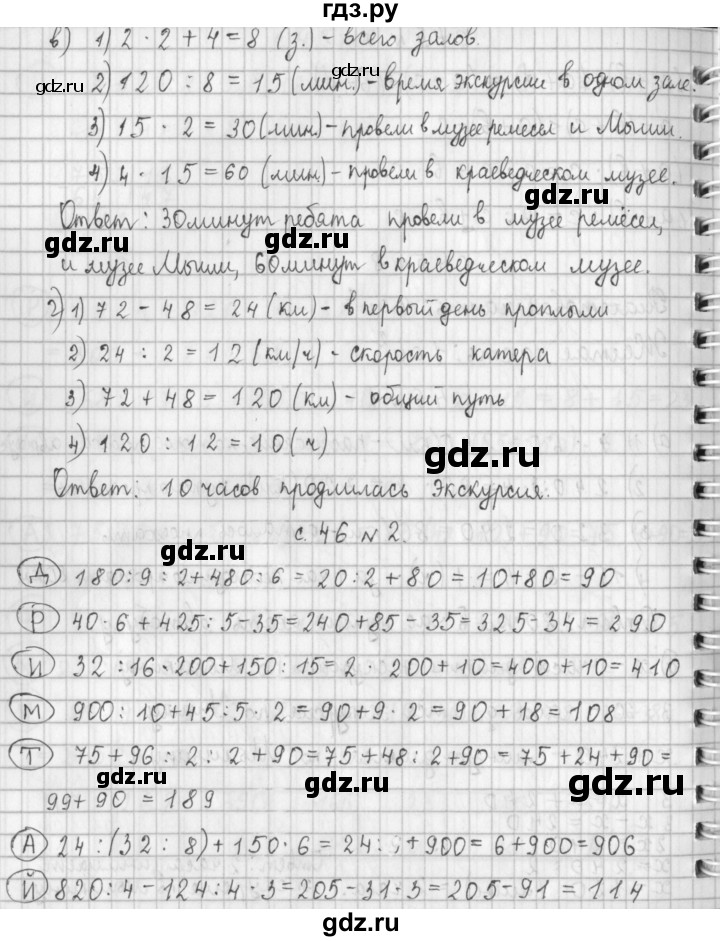 гдз.ру
в) 1) 2 · 2 + 4 = 8 (з.) - всего залов.
2) 120 : 8 = 15 (мин.) - время экскурсии в одном зале.
3) 15 · 2 = 30 (мин.) - провели в музее ремесел и Мыши.
4) 4 · 15 = 60 (мин.) - провели в краеведческом музее.
Ответ: 30 минут ребята провели в музее ремёсел,
и музее Мыши, 60 минут в краеведческом музее.
г) 1) 72 - 48 = 24 (км) - в первый день проплыли
2) 24 : 2 = 12 (км/ч) - скорость катера
3) 72 + 48 = 120 (км) - общий путь
4) 120 : 12 = 10 (ч)
Ответ: 10 часов продлилась экскурсия.
с. 46 № 2.
Д 180 : 9 : 2 + 480 : 6 = 20 : 2 + 80 = 10 + 80 = 90
Р 40 · 6 + 425 : 5 - 35 = 240 + 85 - 35 = 325 - 34 = 290
И 32 : 16 · 200 + 150 : 15 = 2 · 200 + 10 = 400 + 10 = 410
М 900 : 10 + 45 : 5 · 2 = 90 + 9 · 2 = 90 + 18 = 108
Т 75 + 96 : 2 : 2 + 90 = 75 + 48 : 2 + 90 = 75 + 24 + 90 =
99 + 90 = 189
А 24 : (32 : 8) + 150 · 6 = 24 : + 900 = 6 + 900 = 906
Й 820 : 4 - 124 : 4 · 3 = 205 - 31 · 3 = 205 - 91 = 114
gdz.ru
gdz.ru
gdz.ru
gdz.ru
gdz.ru
gdz.ru
gdz.ru
gdz.ru
gdz.ru
gdz.ru
gdz.ru
gdz.ru
gdz.ru